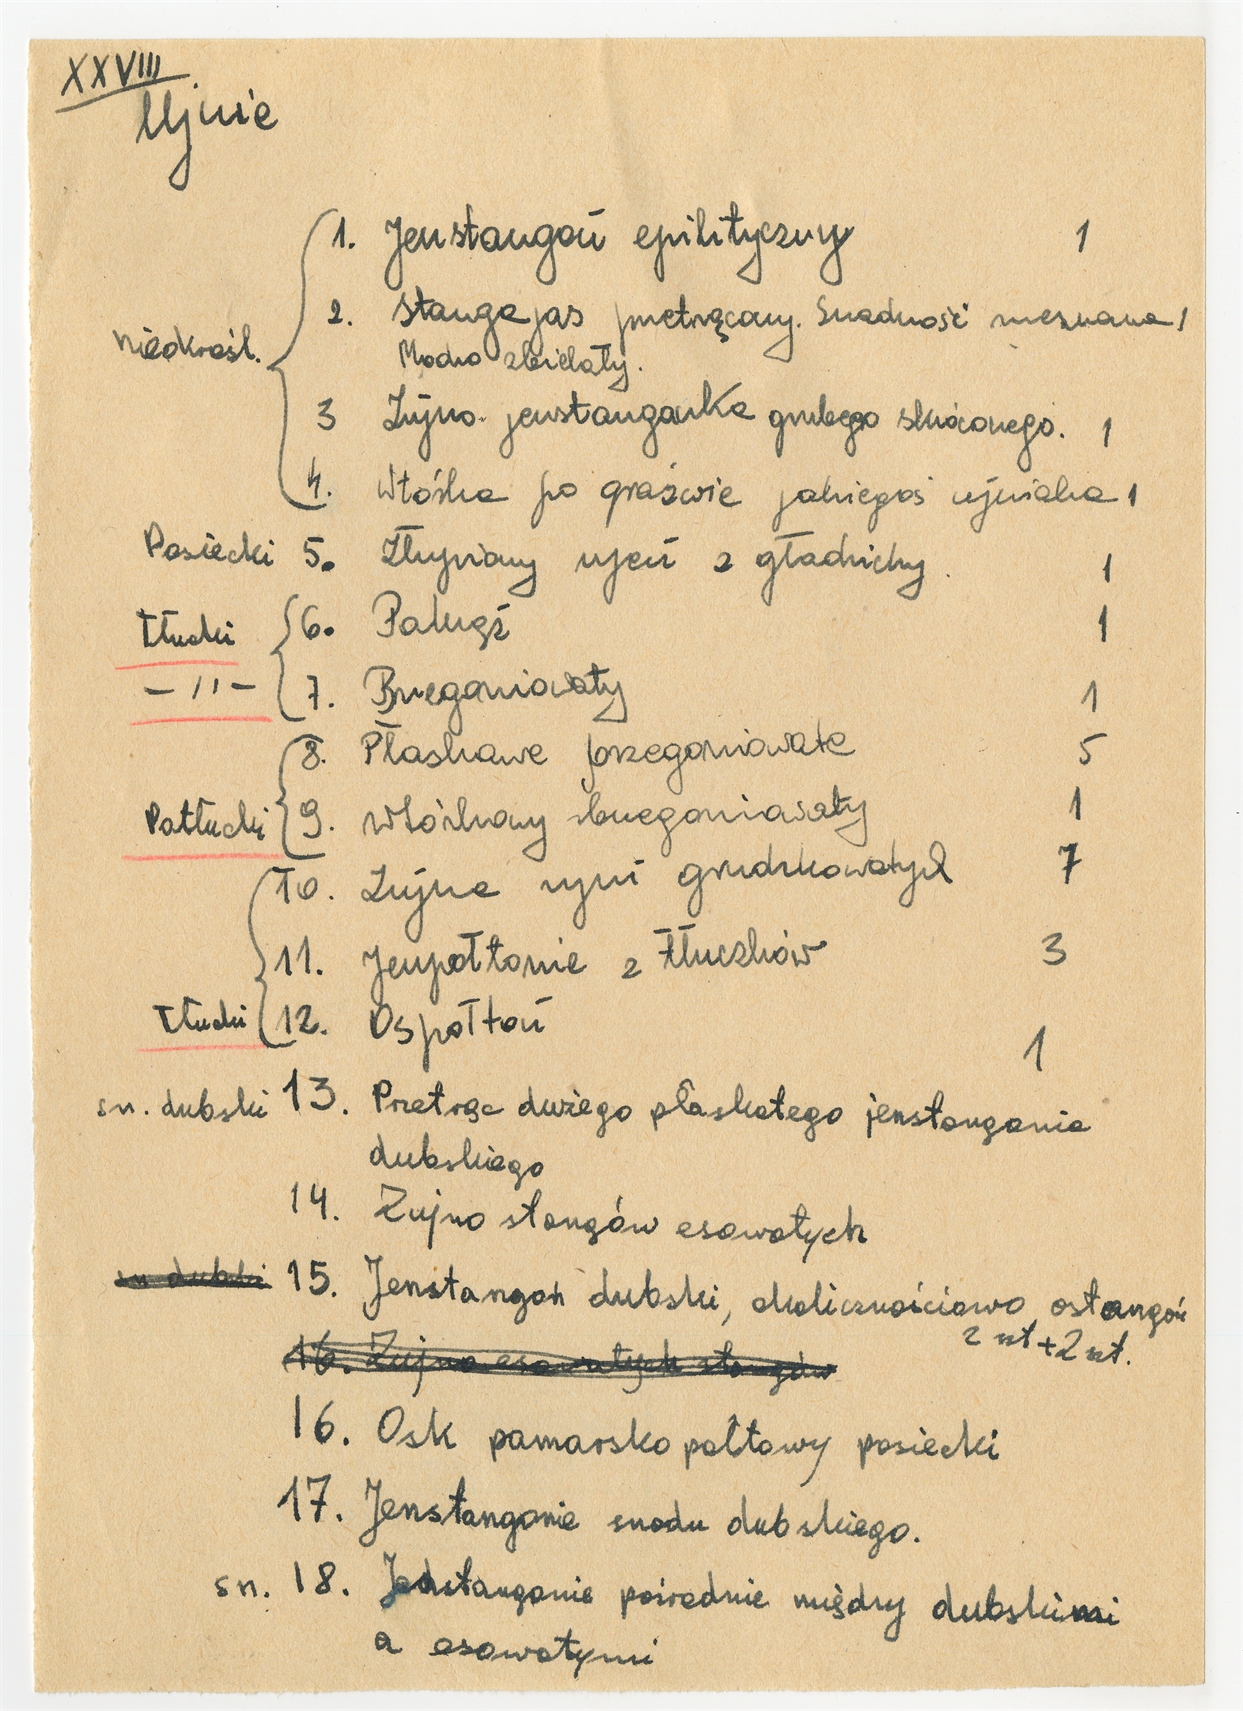 XXVIII
Ujnie
1. Jenstangoń epilityczny 1
2. Stanga jas przetrącony. Snadność nieznana 1
Modno zbielały.
nieokreśl.
3 Zujno jenstanganka grubego skróconego. 1
4. Wtóśka po graźwie jakiegoś ujniaka 1
Posiecki 5. Złupiany ujeń z gładzichy. 1
Tłucki 6. Paługź 1
— 〃 — 7. Brzeganiowaty 1
8. Płaskawe brzeganiowate 5
Patłucki 9. Wtóśkowy brzeganiowaty 1
10. Zujna ujni grudzkowatych 7
11. Jenpołtonie z tłuczków 3
Tłucki 12. Ospołtoń 1
sn. dubski 13. Przetrąc dużego płaskatego jenstangonia
dubskiego
14. Zujno stangów esowatych
sn dubski 15. Jenstangoń dubski, okolicznościowo ostangoń
2 szt + 2 szt.
16. Zujno esowatych stangów
16. Osk pamarsko połtowy posiecki
17. Jenstangonie snodu dubskiego.
sn. 18. Jenstangonie pośrednie między dubskimi
a esowatymi